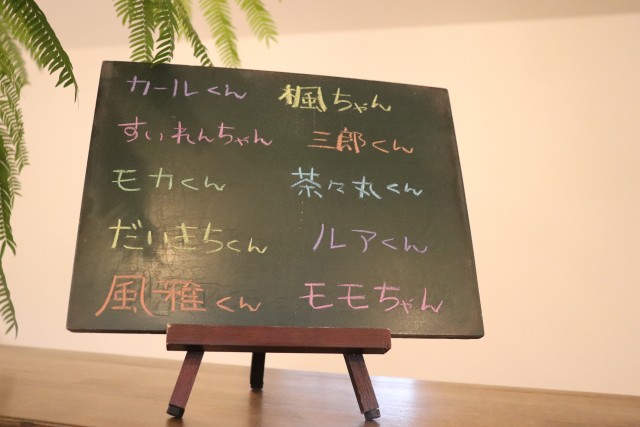 カールくん 楓ちゃん
すいれんちゃん 三郎くん
モカくん 茶々丸くん
だいきちくん ルアくん
風雅くん モモちゃん